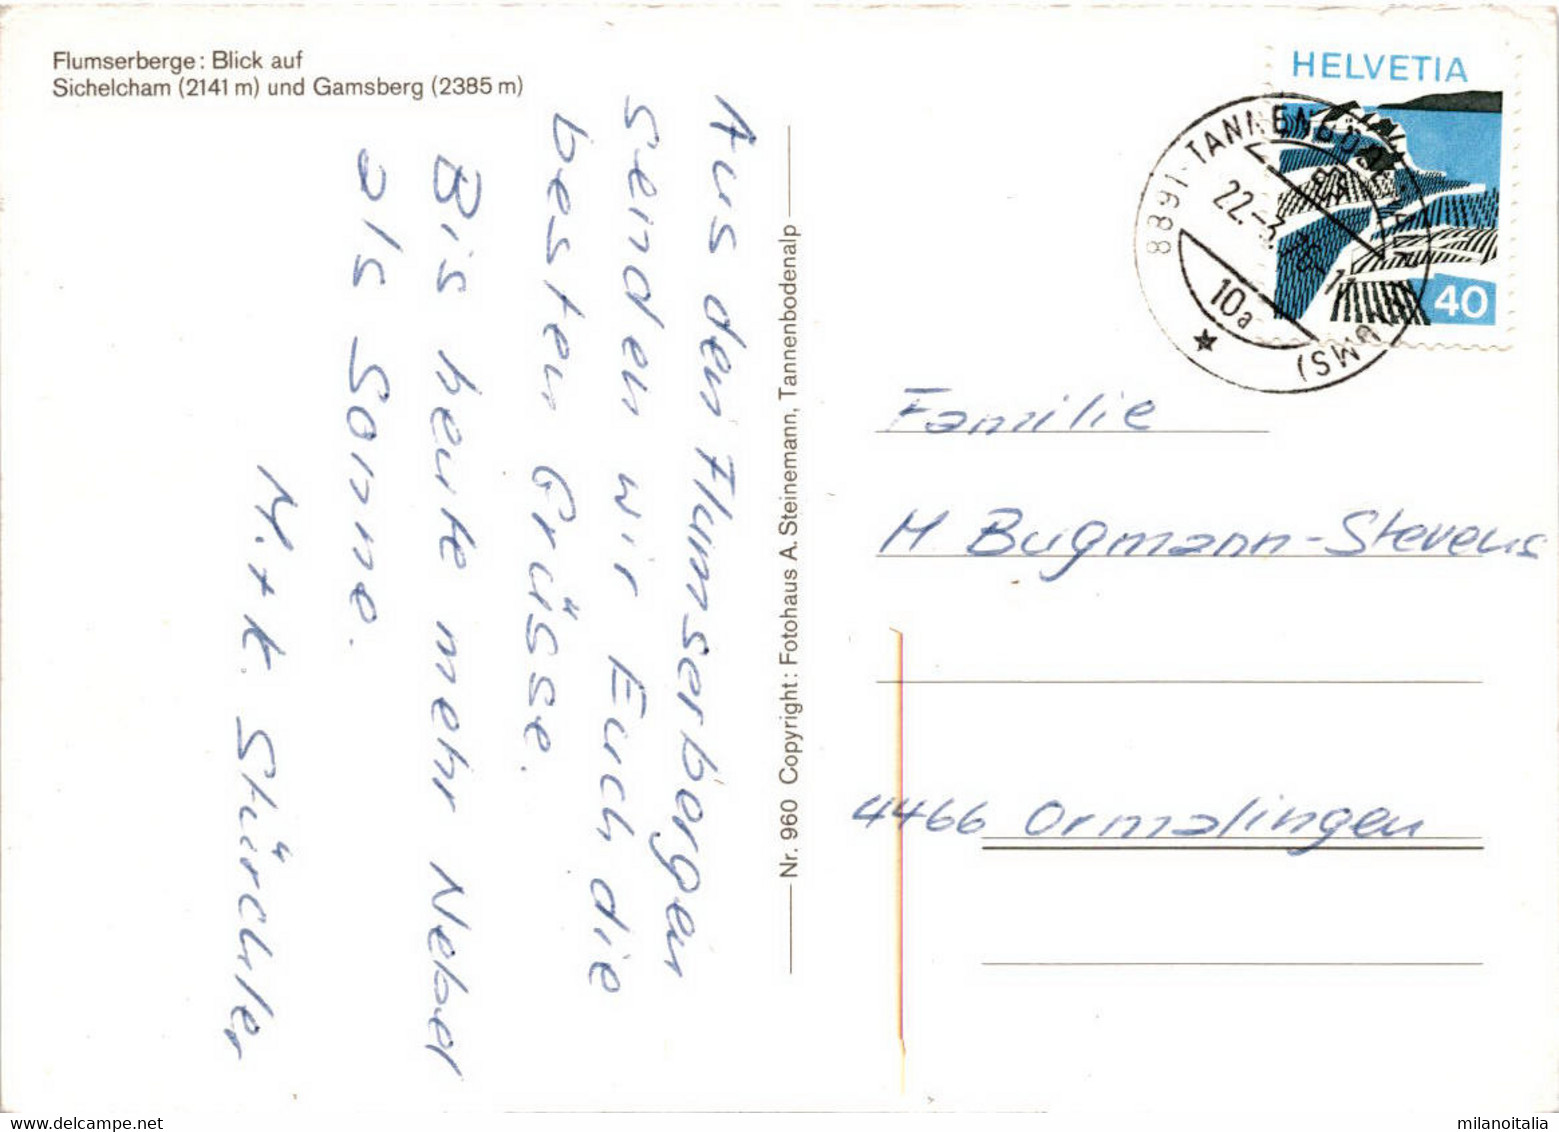 Flumserberge: Blick auf
Sichelcham (2141 m) und Gamsberg (2385 m)
Aus den Flumserbergen
senden wir Euch die
besten Grüsse.
Bis heute mehr Nebel
als Sonne.
M. + K. Stürchler
Nr. 960 Copyright: Fotohaus A. Steinemann, Tannenbodenalp
HELVETIA
40
8891 TANNENBODENALP
22.-3.
10a
UMS)
Familie
M. Bugmann-Stevens
4466 Ormalingen
milanoitalia